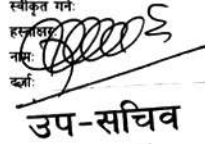 स्वीकृत गर्नेः
हस्ताक्षरः
नामः
दर्जाः
उप-सचिव